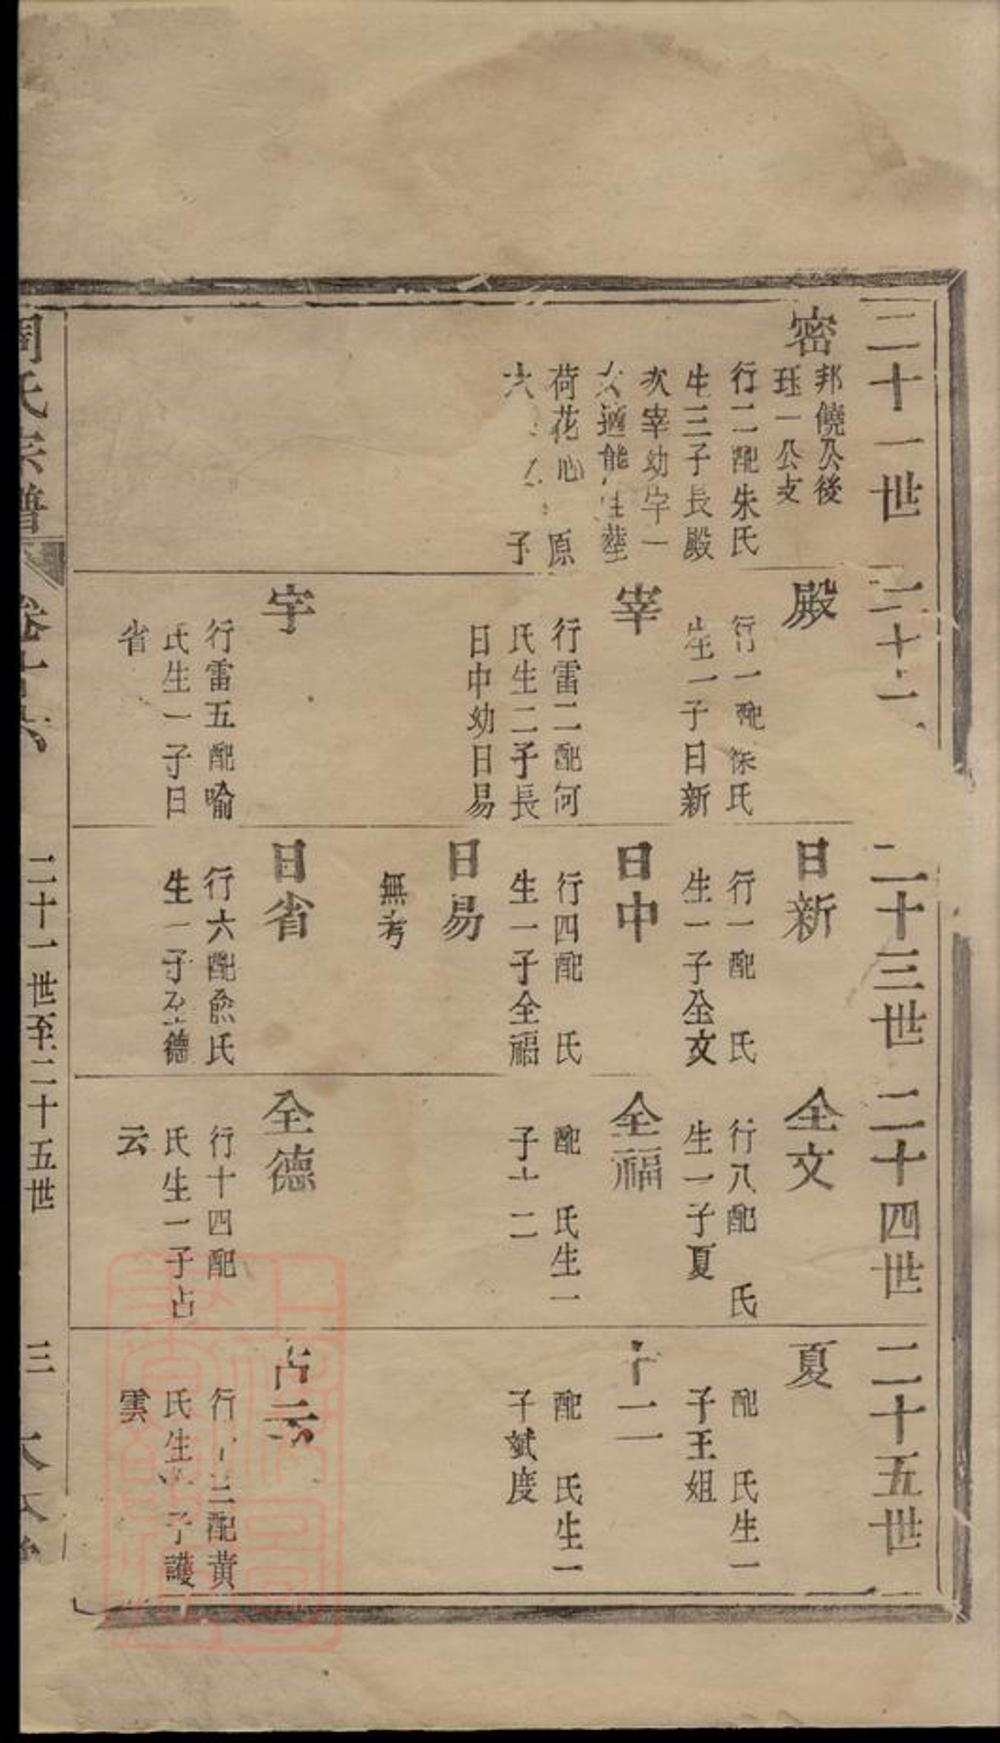 二十一世
密
邦饒公後
珏一公支
行二配朱氏
生三子長殿
次宰幼宇一
女適能
荷花心 原
子
二十二
殿
行一配徐氏
生一子日新
宰
行雷二配何
氏生二子長
日中幼日易
宇
行雷五配喻
氏生一子日
省
二十三世
日新
行一配 氏
生一子全文
日中
行四配 氏
生一子全福
日易
無考
日省
行六配兪氏
生一子全德
二十四世
全文
行八配 氏
生一子夏
全福
配 氏生一
子十二
全德
行十四配
氏生一子占
云
二十五世
夏
配 氏生一
子王姐
十二
配 氏生一
子斌度
占云
行十三配黃
氏生 子護
雲
周氏宗譜
卷十六
二十一世至二十五世
三